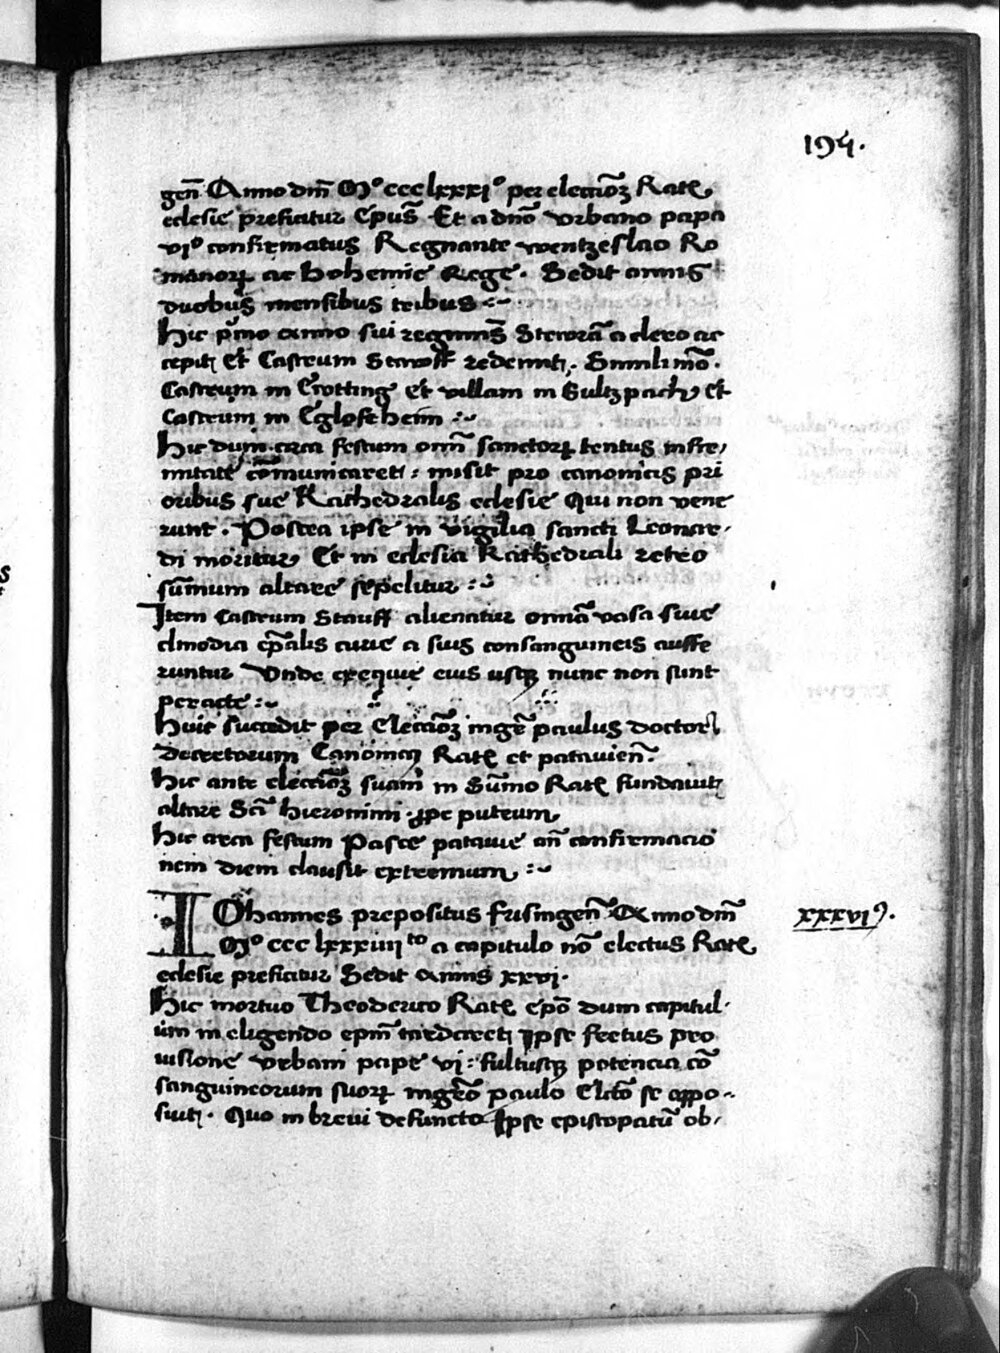 194.
gen̄ Anno dm̄ Mº ccclxxxiº per eleccioꝫ Ratꝭ
eclesie preficitur Ep̄us Et a dn̄o vrbano papa
viº confirmatus Regnante wentzeslao Ro
manorꝝ ac bohemie Rege. Sedit annis
duobus mensibus tribus
hic p̄mo anno sui regimīs Stewrā a clero ac
cepit Et Castrum Stauff redemit. Simili mō.
Castrum in Erotting et villam in Sultzpach et
Castrum in Eglofsheim
hic dum circa festum om̄ sanctorꝝ tentus infir
mitate cōmunicaret: misit pro canonicis pri
oribus sue Kathedralis eclesie Qui non vene
runt. Postea ipse in vigilia sancti Leonar
di moritur Et in eclesia Kathedrali retro
sūmum altare sepelitur
Item castrum Stauff alienatur om̄ia vasa siue
clinodia ep̄alis curie a suis consanguineis auffe
runtur Vnde exequie eius usqꝫ nunc non sunt
peracte
huic succedit per Eleccioꝫ mgr̄ paulus doctor
decretorum Canonicꝰ Ratꝭ et patavien̄.
hic ante eleccioꝫ suam in Sūmo Ratꝭ fundauit
altare Scī hieronimi ꝓpe puteum
hic circa festum Pasce patauie an̄ confirmacio
nem diem clausit extremum
IOhannes prepositus frisingen̄ Anno dm̄
xxxviꝰ.
Mº ccc lxxxiiiitº a capitulo nō electus Ratꝭ
eclesie preficitur Sedit Annis xxvi.
hic mortuo Theoderico Ratꝭ ep̄o dum capitul
um in eligendo ep̄m tardaret Ipse fretus pro
uisione vrbani pape vi: fultusqꝫ potencia cō
sanguineorum suorꝝ mgr̄o paulo Elcō se oppo
suit. Quo in breui defuncto Ipse episcopatū ob